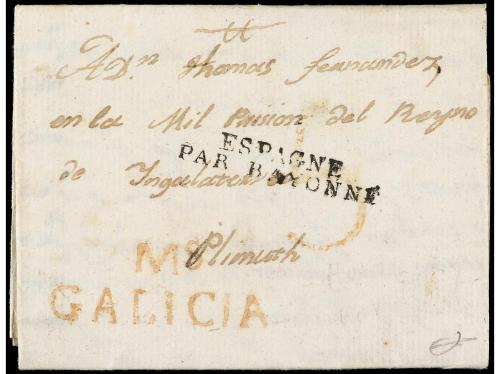 A Dn. Thomas Fernandez,
en la Mil Prision del Reyno
de Ingalaterra
ESPAGNE
PAR BAYONNE
Plimuth
Ms
GALICIA